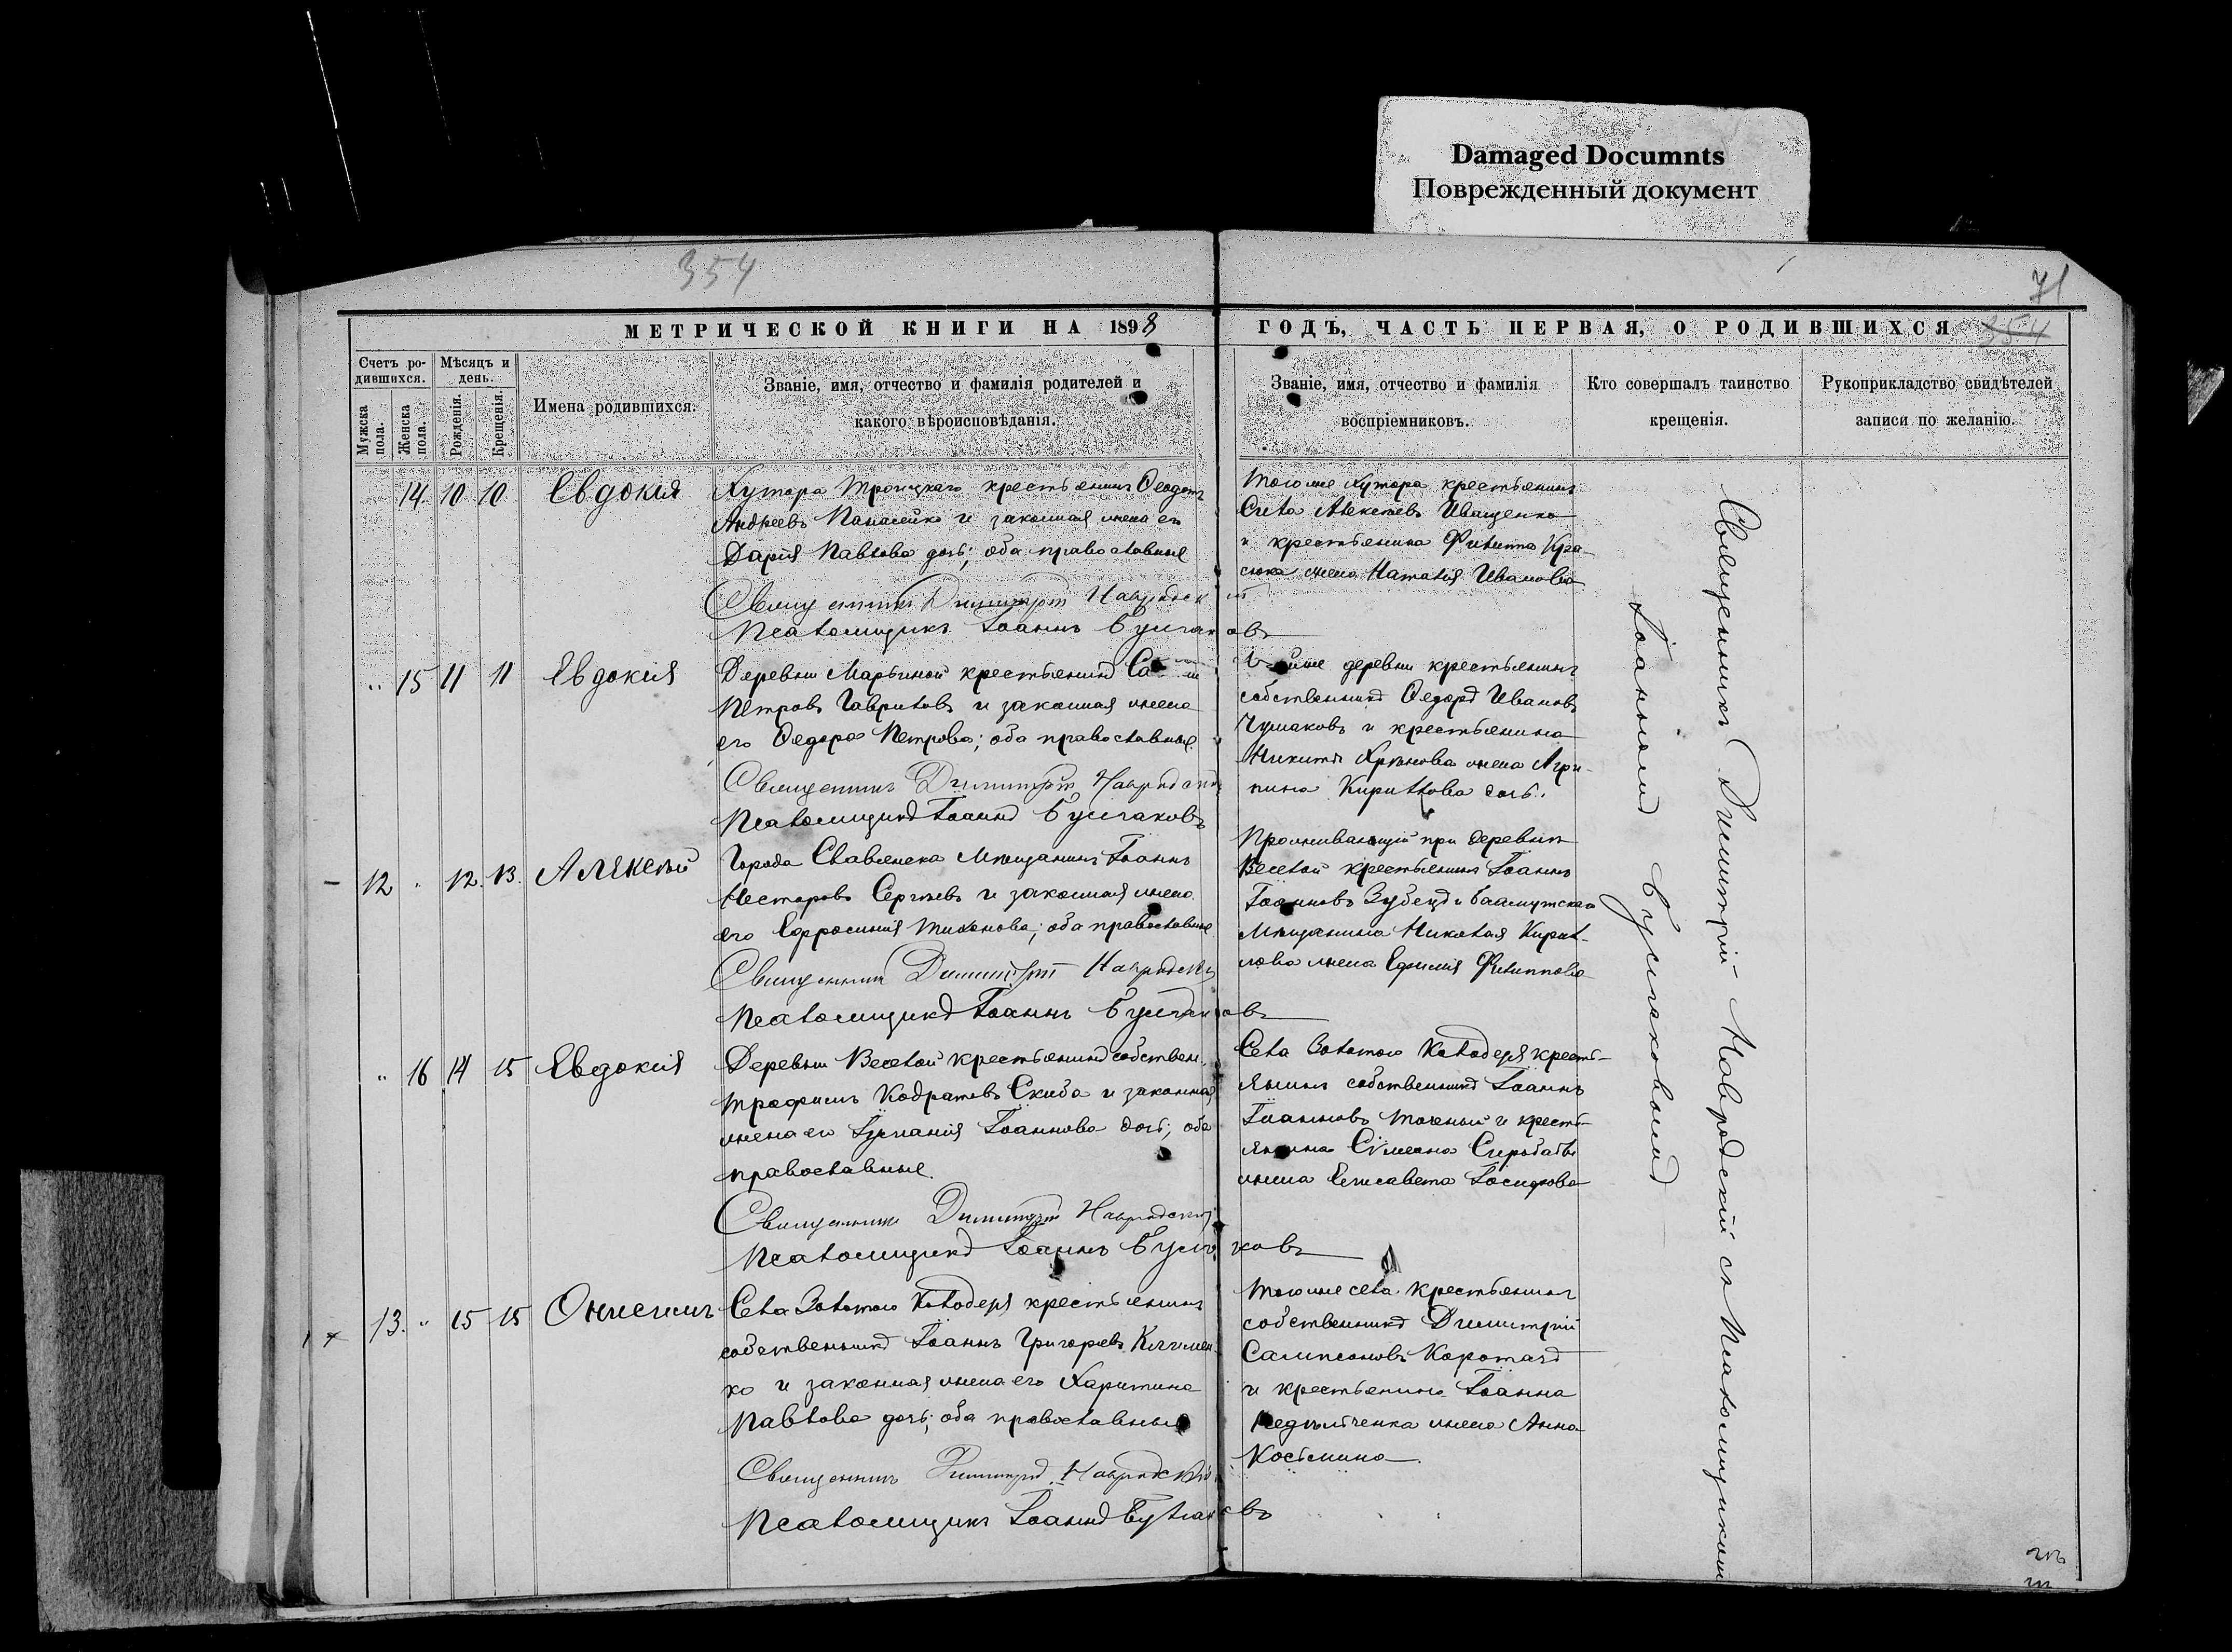 Damaged Documnts
Поврежденный документ
354
71
МЕТРИЧЕСКОЙ КНИГИ НА 1898
ГОДЪ, ЧАСТЬ ПЕРВАЯ, О РОДИВШИХСЯ 354
Счетъ ро-
дившихся.
Мужска
пола.
Женска
пола.
Мѣсяцъ и
день.
Рожденія.
Крещенія.
Имена родившихся.
Званіе, имя, отчество и фамилія родителей и
какого вѣроисповѣданія.
Званіе, имя, отчество и фамилія
воспріемниковъ.
Кто совершалъ таинство
крещенія.
Рукоприкладство свидѣтелей
записи по желанію.
14. 10 10 Евдокія
Хутора Троицкаго крестьянинъ Ѳеодотъ
Андреевъ Панасейко и законная жена его
Дарія Павлова дочь; оба православные
Священникъ Димитрій
Псаломщикъ Іоаннъ
Того же хутора крестьянинъ
Сила Алексѣевъ Иващенко
и крестьянина Филиппа Кра-
сюка жена Наталія Иванова
" 15 11 11 Евдокія
Деревни Марьиной крестьянинъ
Петровъ Гавриловъ и законная жена
его Ѳедора Петрова; оба православные.
Священникъ Димитрій
Псаломщикъ Іоаннъ
деревни крестьянинъ
собственникъ Ѳедоръ Ивановъ
Чумаковъ и крестьянина
Никиты жена Агри-
пина Кириллова дочь.
12 " 12. 13. Алексѣй
Города Славянска мѣщанинъ Іоаннъ
Несторовъ Сергѣевъ и законная жена
его Ефросинія Тихонова; оба православные
Священникъ Димитрій
Псаломщикъ Іоаннъ
Проживающій при деревнѣ
Веселой крестьянинъ Іоаннъ
Іоанновъ Зубецъ и Бахмутскаго
мѣщанина Николая Кирил-
лова жена Ефимія Филиппова
" 16 14 15 Евдокія
Деревни Веселой крестьянинъ собствен.
Трофимъ Кодратовъ Скиба и законная
жена его Іуліанія Іоаннова дочь; оба
православные.
Священникъ Димитрій
Псаломщикъ Іоаннъ
Села Золотого Колодезя кресть-
янинъ собственникъ Іоаннъ
Іоанновъ Точеный и кресть-
янина Сѵмеона
жена Елисавета Іосифова
13. " 15 15 Онисимъ
Села Золотого Колодезя крестьянинъ
собственникъ Іоаннъ Григорьевъ Климен-
ко и законная жена его Харитина
Павлова дочь; оба православные
Священникъ Димитрій
Псаломщикъ Іоаннъ
Того же села крестьянинъ
собственникъ Димитрій
Сампсоновъ Коротачъ
и крестьянина Іоанна
жена Анна
Косьмина.
Священникъ Димитрій Навродскій съ Псаломщикомъ
Іоанномъ